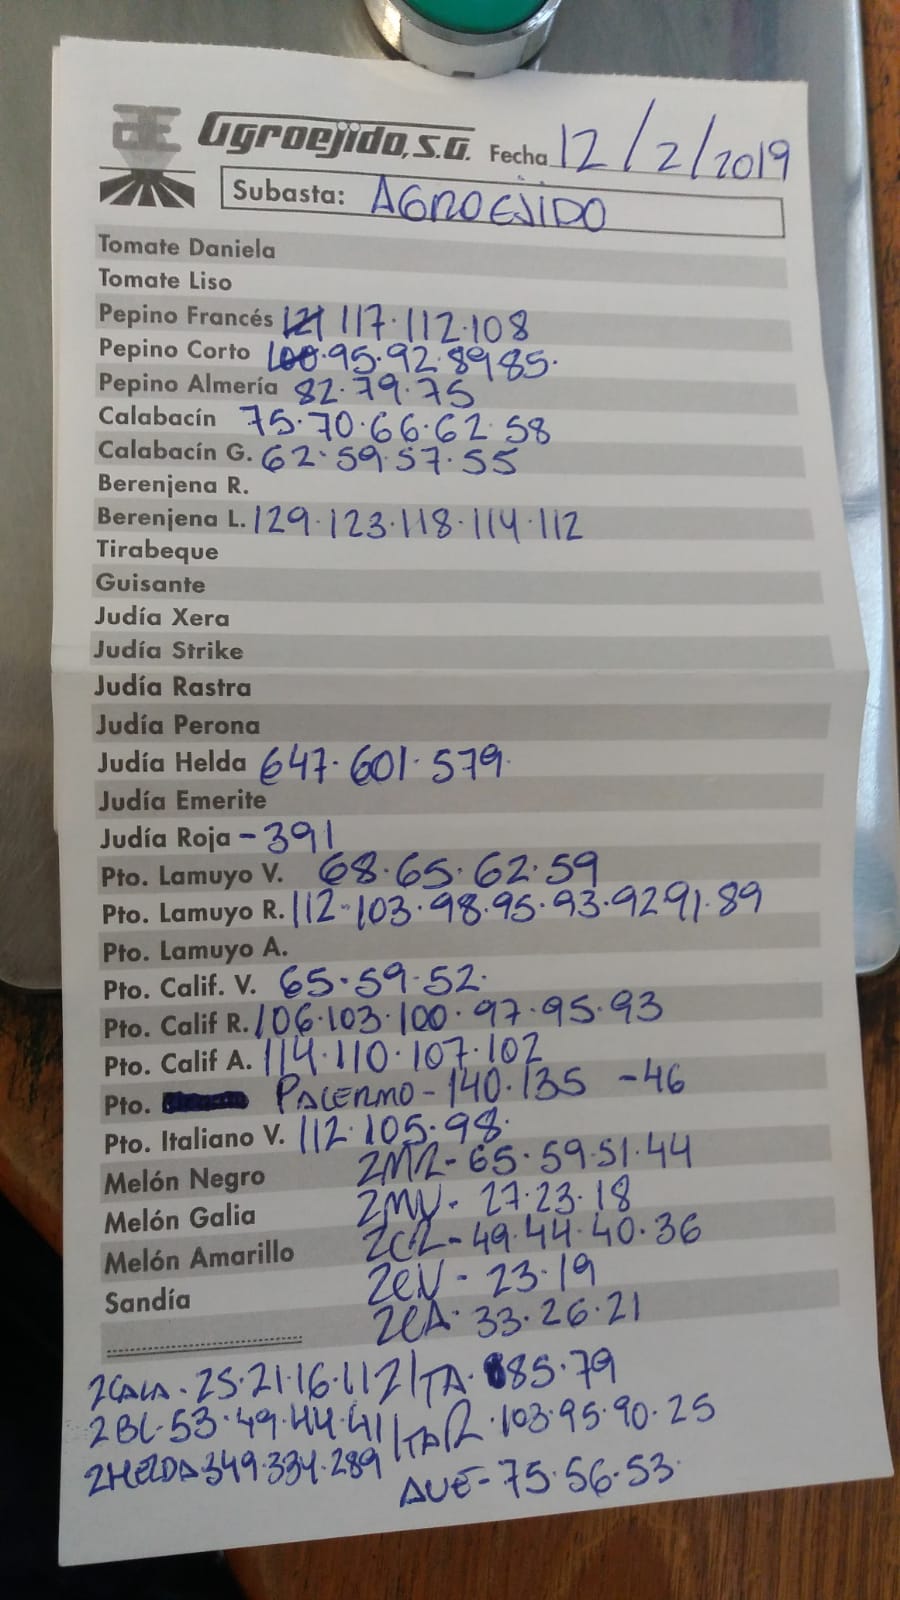 Agroejido, S.A. Fecha 12/2/2019
Subasta: AGROEJIDO
Tomate Daniela
Tomate Liso
Pepino Francés 121 117.112.108
Pepino Corto 100.95.92.89.85.
Pepino Almería 82.79.75
Calabacín 75.70.66.62.58
Calabacín G. 62.59.57.55
Berenjena R.
Berenjena L. 129.123.118.114.112
Tirabeque
Guisante
Judía Xera
Judía Strike
Judía Rastra
Judía Perona
Judía Helda 647.601.579.
Judía Emerite
Judía Roja -391
Pto. Lamuyo V. 68.65.62.59
Pto. Lamuyo R. 112-103.98.95.93.92 91.89
Pto. Lamuyo A.
Pto. Calif. V. 65.59.52.
Pto. Calif R. 106.103.100.97.95.93
Pto. Calif A. 114.110.107.102
Pto. PALERMO-140.135 -46
Pto. Italiano V. 112.105.98.
Melón Negro 2MR-65.59.51.44
Melón Galia 2MV-27.23.18
Melón Amarillo 2CR-49.44.40.36
Sandía 2CV-23.19
2CA.33.26.21
2CALA.25.21.16. TA.85.79
2BL.53.49.44.41 TAR.103.95.90.25
2HELDA 349.334.289
AVE-75.56.53.